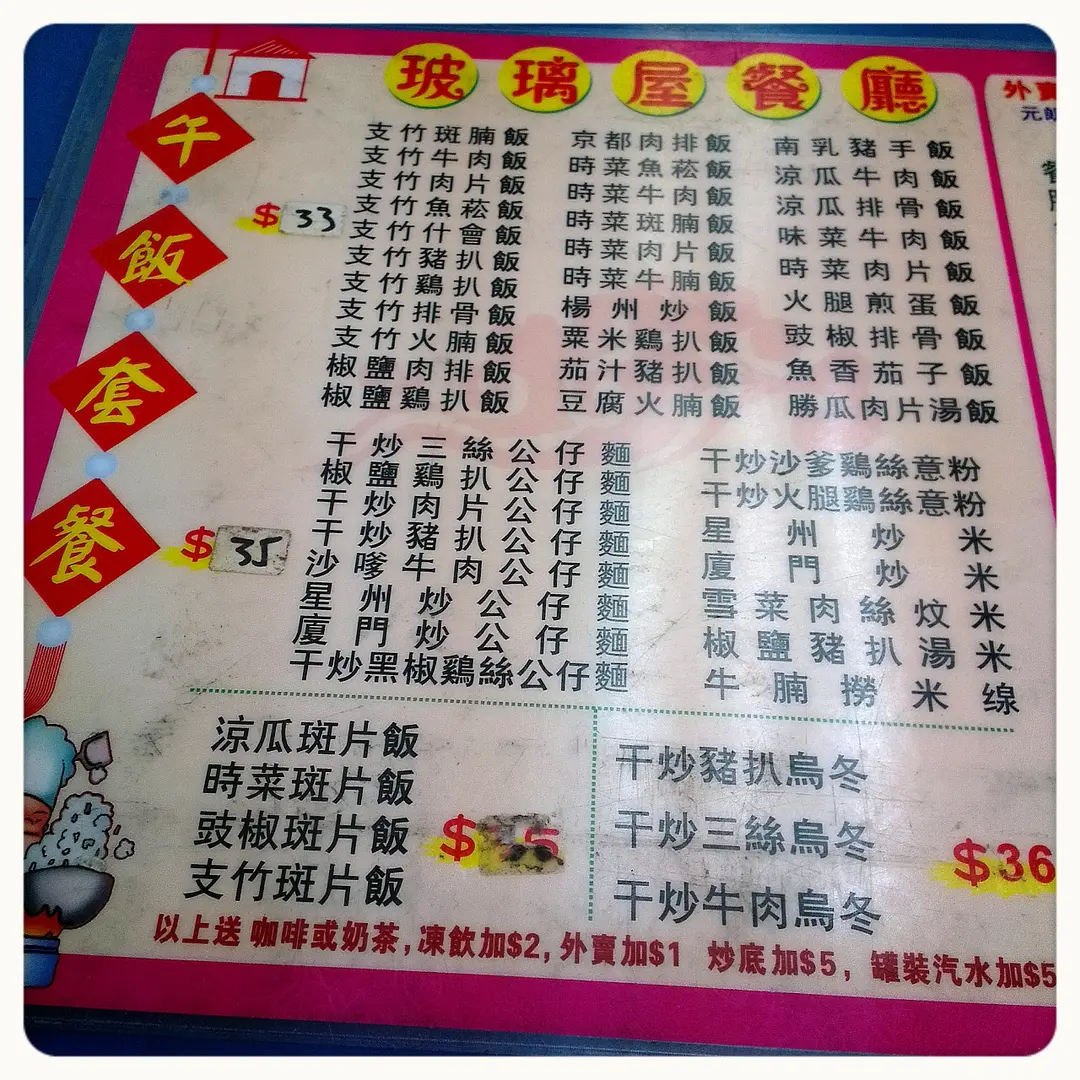 玻璃屋餐廳
午飯套餐
$33
支竹斑腩飯
支竹牛肉飯
支竹肉片飯
支竹魚菘飯
支竹什會飯
支竹豬扒飯
支竹鷄扒飯
支竹排骨飯
支竹火腩飯
椒鹽肉排飯
椒鹽鷄扒飯
京都肉排飯
時菜魚菘飯
時菜牛肉飯
時菜斑腩飯
時菜肉片飯
時菜牛腩飯
楊州炒飯
粟米鷄扒飯
茄汁豬扒飯
豆腐火腩飯
南乳豬手飯
涼瓜牛肉飯
涼瓜排骨飯
味菜牛肉飯
時菜肉片飯
火腿煎蛋飯
豉椒排骨飯
魚香茄子飯
勝瓜肉片湯飯
$35
干炒三絲公仔麵
椒鹽鷄扒公仔麵
干炒肉片公仔麵
干炒豬扒公仔麵
沙嗲牛肉公仔麵
星州炒公仔麵
廈門炒公仔麵
干炒黑椒鷄絲公仔麵
干炒沙爹鷄絲意粉
干炒火腿鷄絲意粉
星州炒米
廈門炒米
雪菜肉絲炆米
椒鹽豬扒湯米
牛腩撈米线
涼瓜斑片飯
時菜斑片飯
豉椒斑片飯
支竹斑片飯
$
干炒豬扒烏冬
干炒三絲烏冬
干炒牛肉烏冬
$36
以上送 咖啡或奶茶,凍飲加$2,外賣加$1 炒底加$5,罐裝汽水加$5
外
元